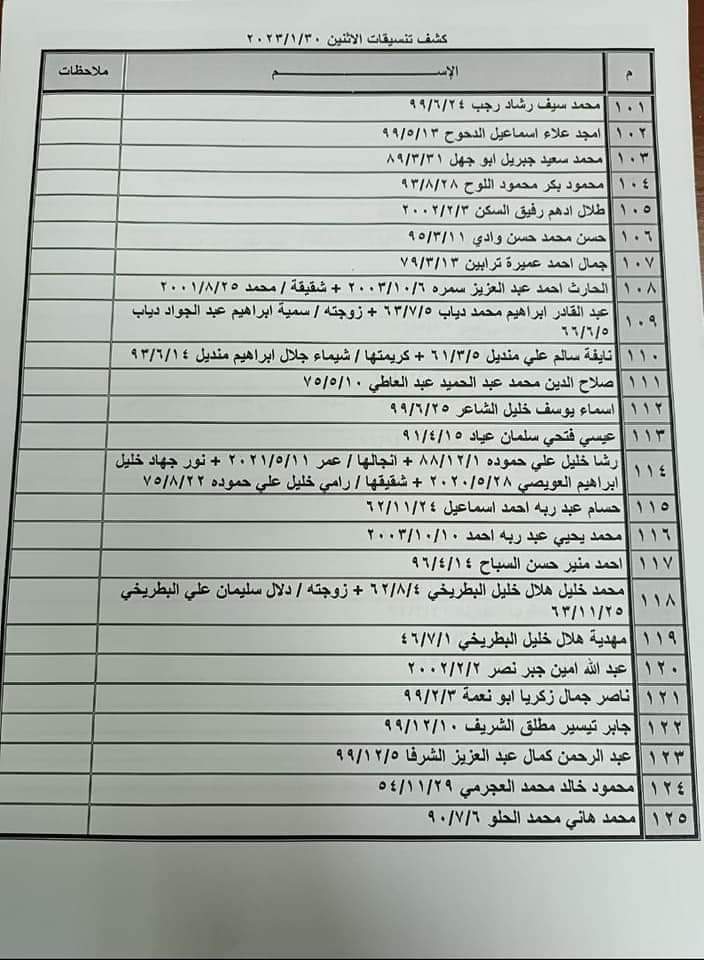 كشف تنسيقات الاثنين ٢٠٢٣/١/٣٠
م الإســـــــم ملاحظات
١٠١ محمد سيف رشاد رجب ٩٩/٦/٢٤
١٠٢ امجد علاء اسماعيل الدحوح ٩٩/٥/١٣
١٠٣ محمد سعيد جبريل ابو جهل ٨٩/٣/٣١
١٠٤ محمود بكر محمود اللوح ٩٣/٨/٢٨
١٠٥ طلال ادهم رفيق السكن ٢٠٠٢/٢/٣
١٠٦ حسن محمد حسن وادي ٩٥/٣/١١
١٠٧ جمال احمد عميرة ترابين ٧٩/٣/١٣
١٠٨ الحارث احمد عبد العزيز سمره ٢٠٠٣/١٠/٦ + شقيقة / محمد ٢٠٠١/٨/٢٥
١٠٩ عبد القادر ابراهيم محمد دياب ٦٣/٧/٥ + زوجته / سمية ابراهيم عبد الجواد دياب
٦٦/٦/٥
١١٠ نايفة سالم علي منديل ٦١/٣/٥ + كريمتها / شيماء جلال ابراهيم منديل ٩٣/٦/١٤
١١١ صلاح الدين محمد عبد الحميد عبد العاطي ٧٥/٥/١٠
١١٢ اسماء يوسف خليل الشاعر ٩٩/٦/٢٥
١١٣ عيسي فتحي سلمان عياد ٩١/٤/١٥
١١٤ رشا خليل علي حموده ٨٨/١٢/١ + انجالها / عمر ٢٠٢١/٥/١١ + نور جهاد خليل
ابراهيم العويصي ٢٠٢٠/٥/٢٨ + شقيقها / رامي خليل علي حموده ٧٥/٨/٢٢
١١٥ حسام عبد ربه احمد اسماعيل ٦٢/١١/٢٤
١١٦ محمد يحيي عبد ربه احمد ٢٠٠٣/١٠/١٠
١١٧ احمد منير حسن السباح ٩٦/٤/١٤
١١٨ محمد خليل هلال خليل البطريخي ٦٢/٨/٤ + زوجته / دلال سليمان علي البطريخي
٦٣/١١/٢٥
١١٩ مهدية هلال خليل البطريخي ٤٦/٧/١
١٢٠ عبد الله امين جبر نصر ٢٠٠٢/٢/٢
١٢١ ناصر جمال زكريا ابو نعمة ٩٩/٢/٣
١٢٢ جابر تيسير مطلق الشريف ٩٩/١٢/١٠
١٢٣ عبد الرحمن كمال عبد العزيز الشرفا ٩٩/١٢/٥
١٢٤ محمود خالد محمد العجرمي ٥٤/١١/٢٩
١٢٥ محمد هاني محمد الحلو ٩٠/٧/٦